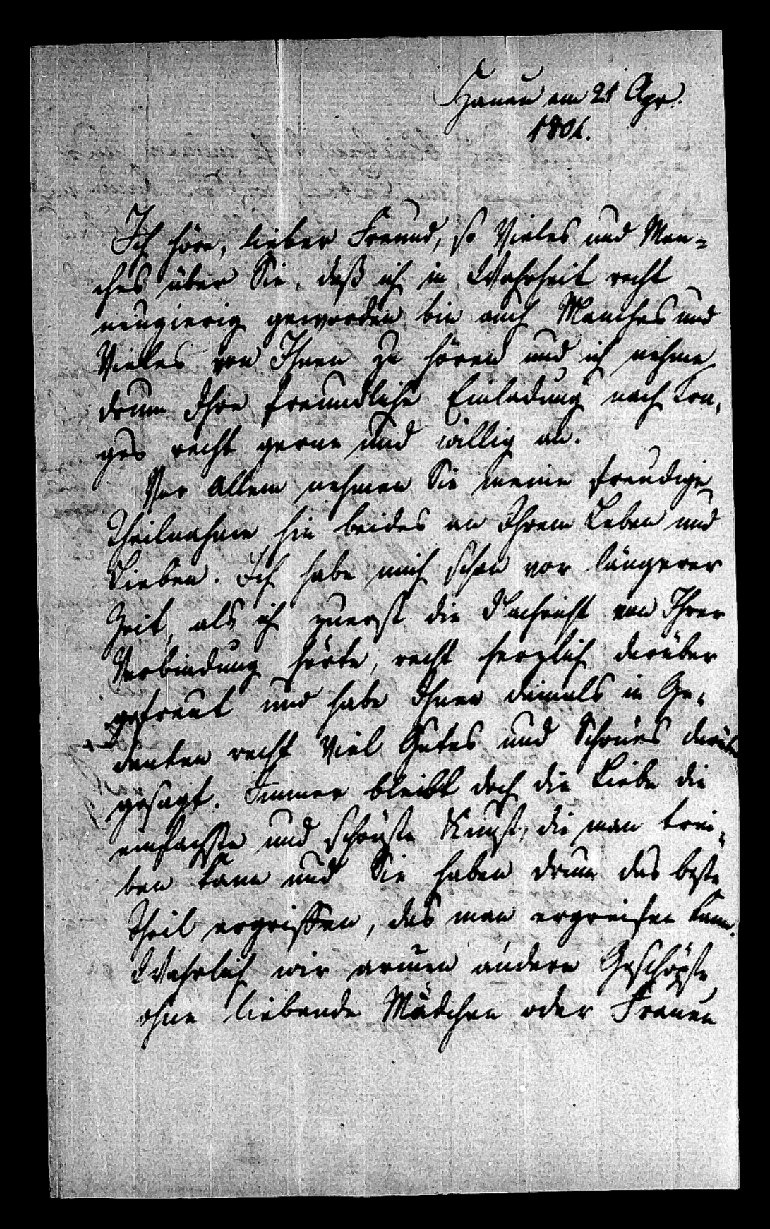 Hanau am 21 Apr.
1801.
Ich höre, lieber Freund, so Vieles und Man-
ches über Sie, daß ich in Wahrheit recht
neugierig geworden bin auch Manches und
Vieles von Ihnen zu hören und ich nehme
drum Ihre freundliche Einladung nach
recht gerne und willig an.
Vor Allem nehmen Sie meine freudige
Theilnahme hin beides an Ihrem Leben und
Lieben. Ich habe mich schon vor längerer
Zeit, als ich zuerst die Nachricht von Ihrer
Verbindung hörte, recht herzlich darüber
gefreut und habe Ihnen damals in Ge-
danken recht viel Gutes und Schönes darüber
gesagt. Immer bleibt doch die Liebe die
einfachste und schönste Kunst, die man trei-
ben kann und Sie haben drum das beste
Theil ergriffen, das man ergreifen kann.
Wahrlich wir armen andern Geschöpfe
ohne liebende Mädchen oder Frauen